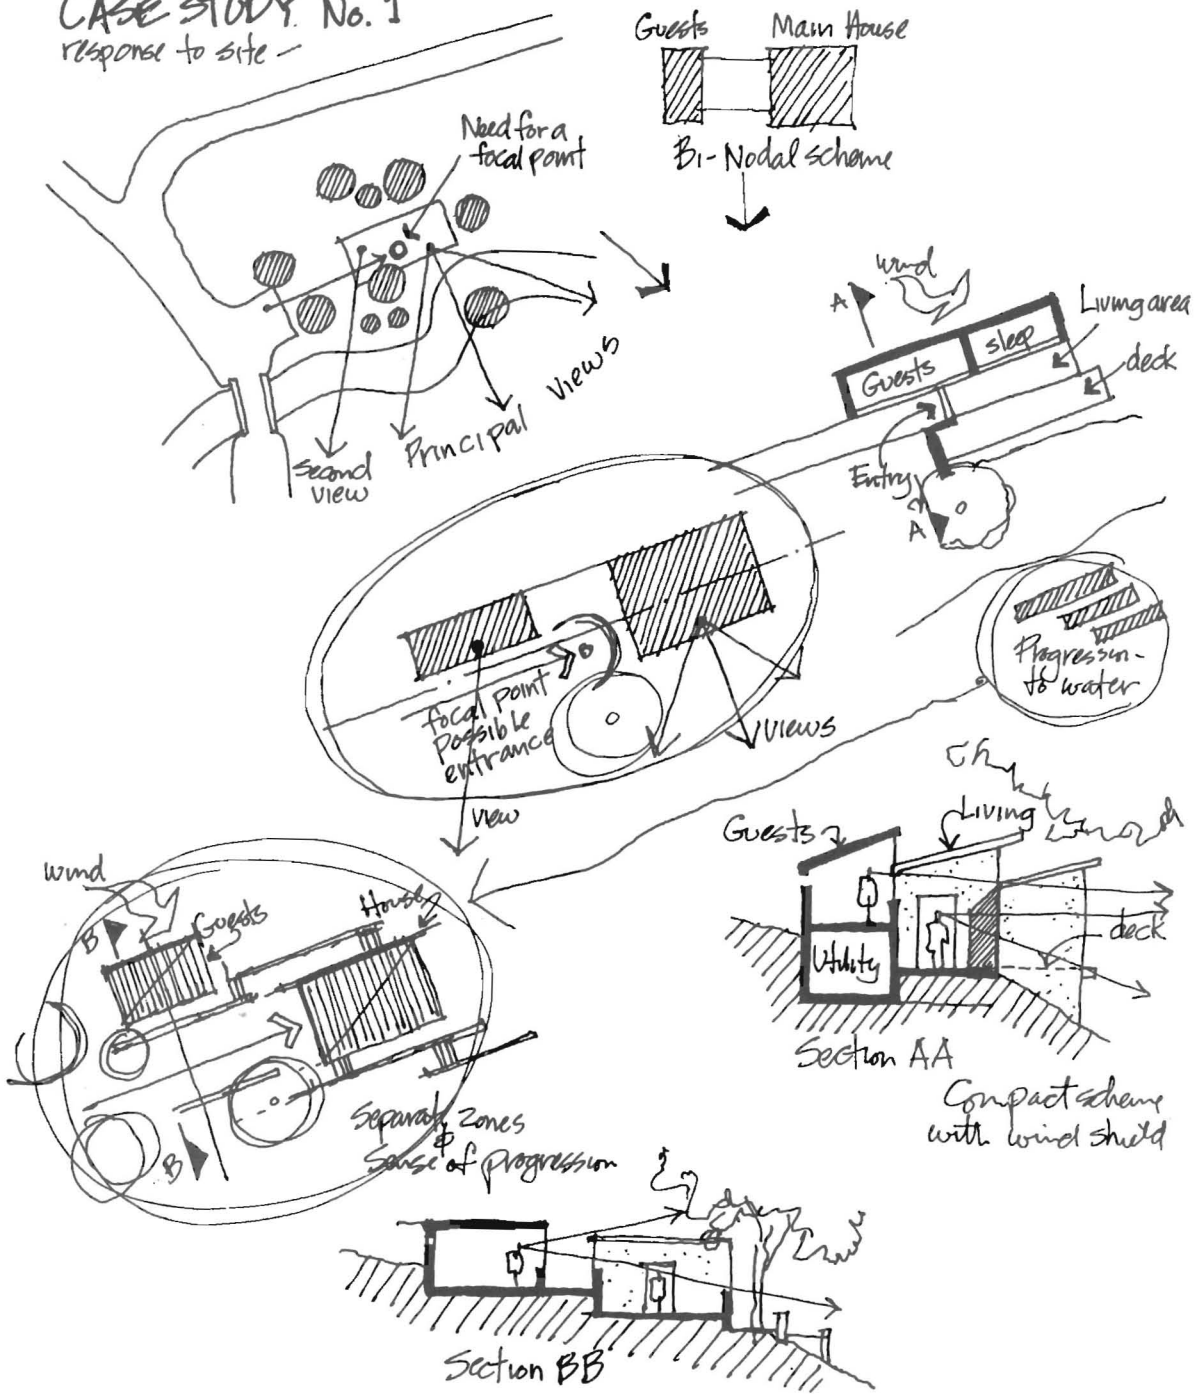 CASE STUDY No. 1
response to site -
Guests
Main House
Bi-Nodal scheme
Need for a
focal point
Second
view
Principal
Views
wind
A
Guests
sleep
Living area
deck
Entry
A
focal point
possible
entrance
view
views
Progression-
to water
wind
B
Guests
House
B
Separate zones
&
Sense of progression
Guests
Living
Utility
deck
Section AA
Compact scheme
with wind shield
Section BB